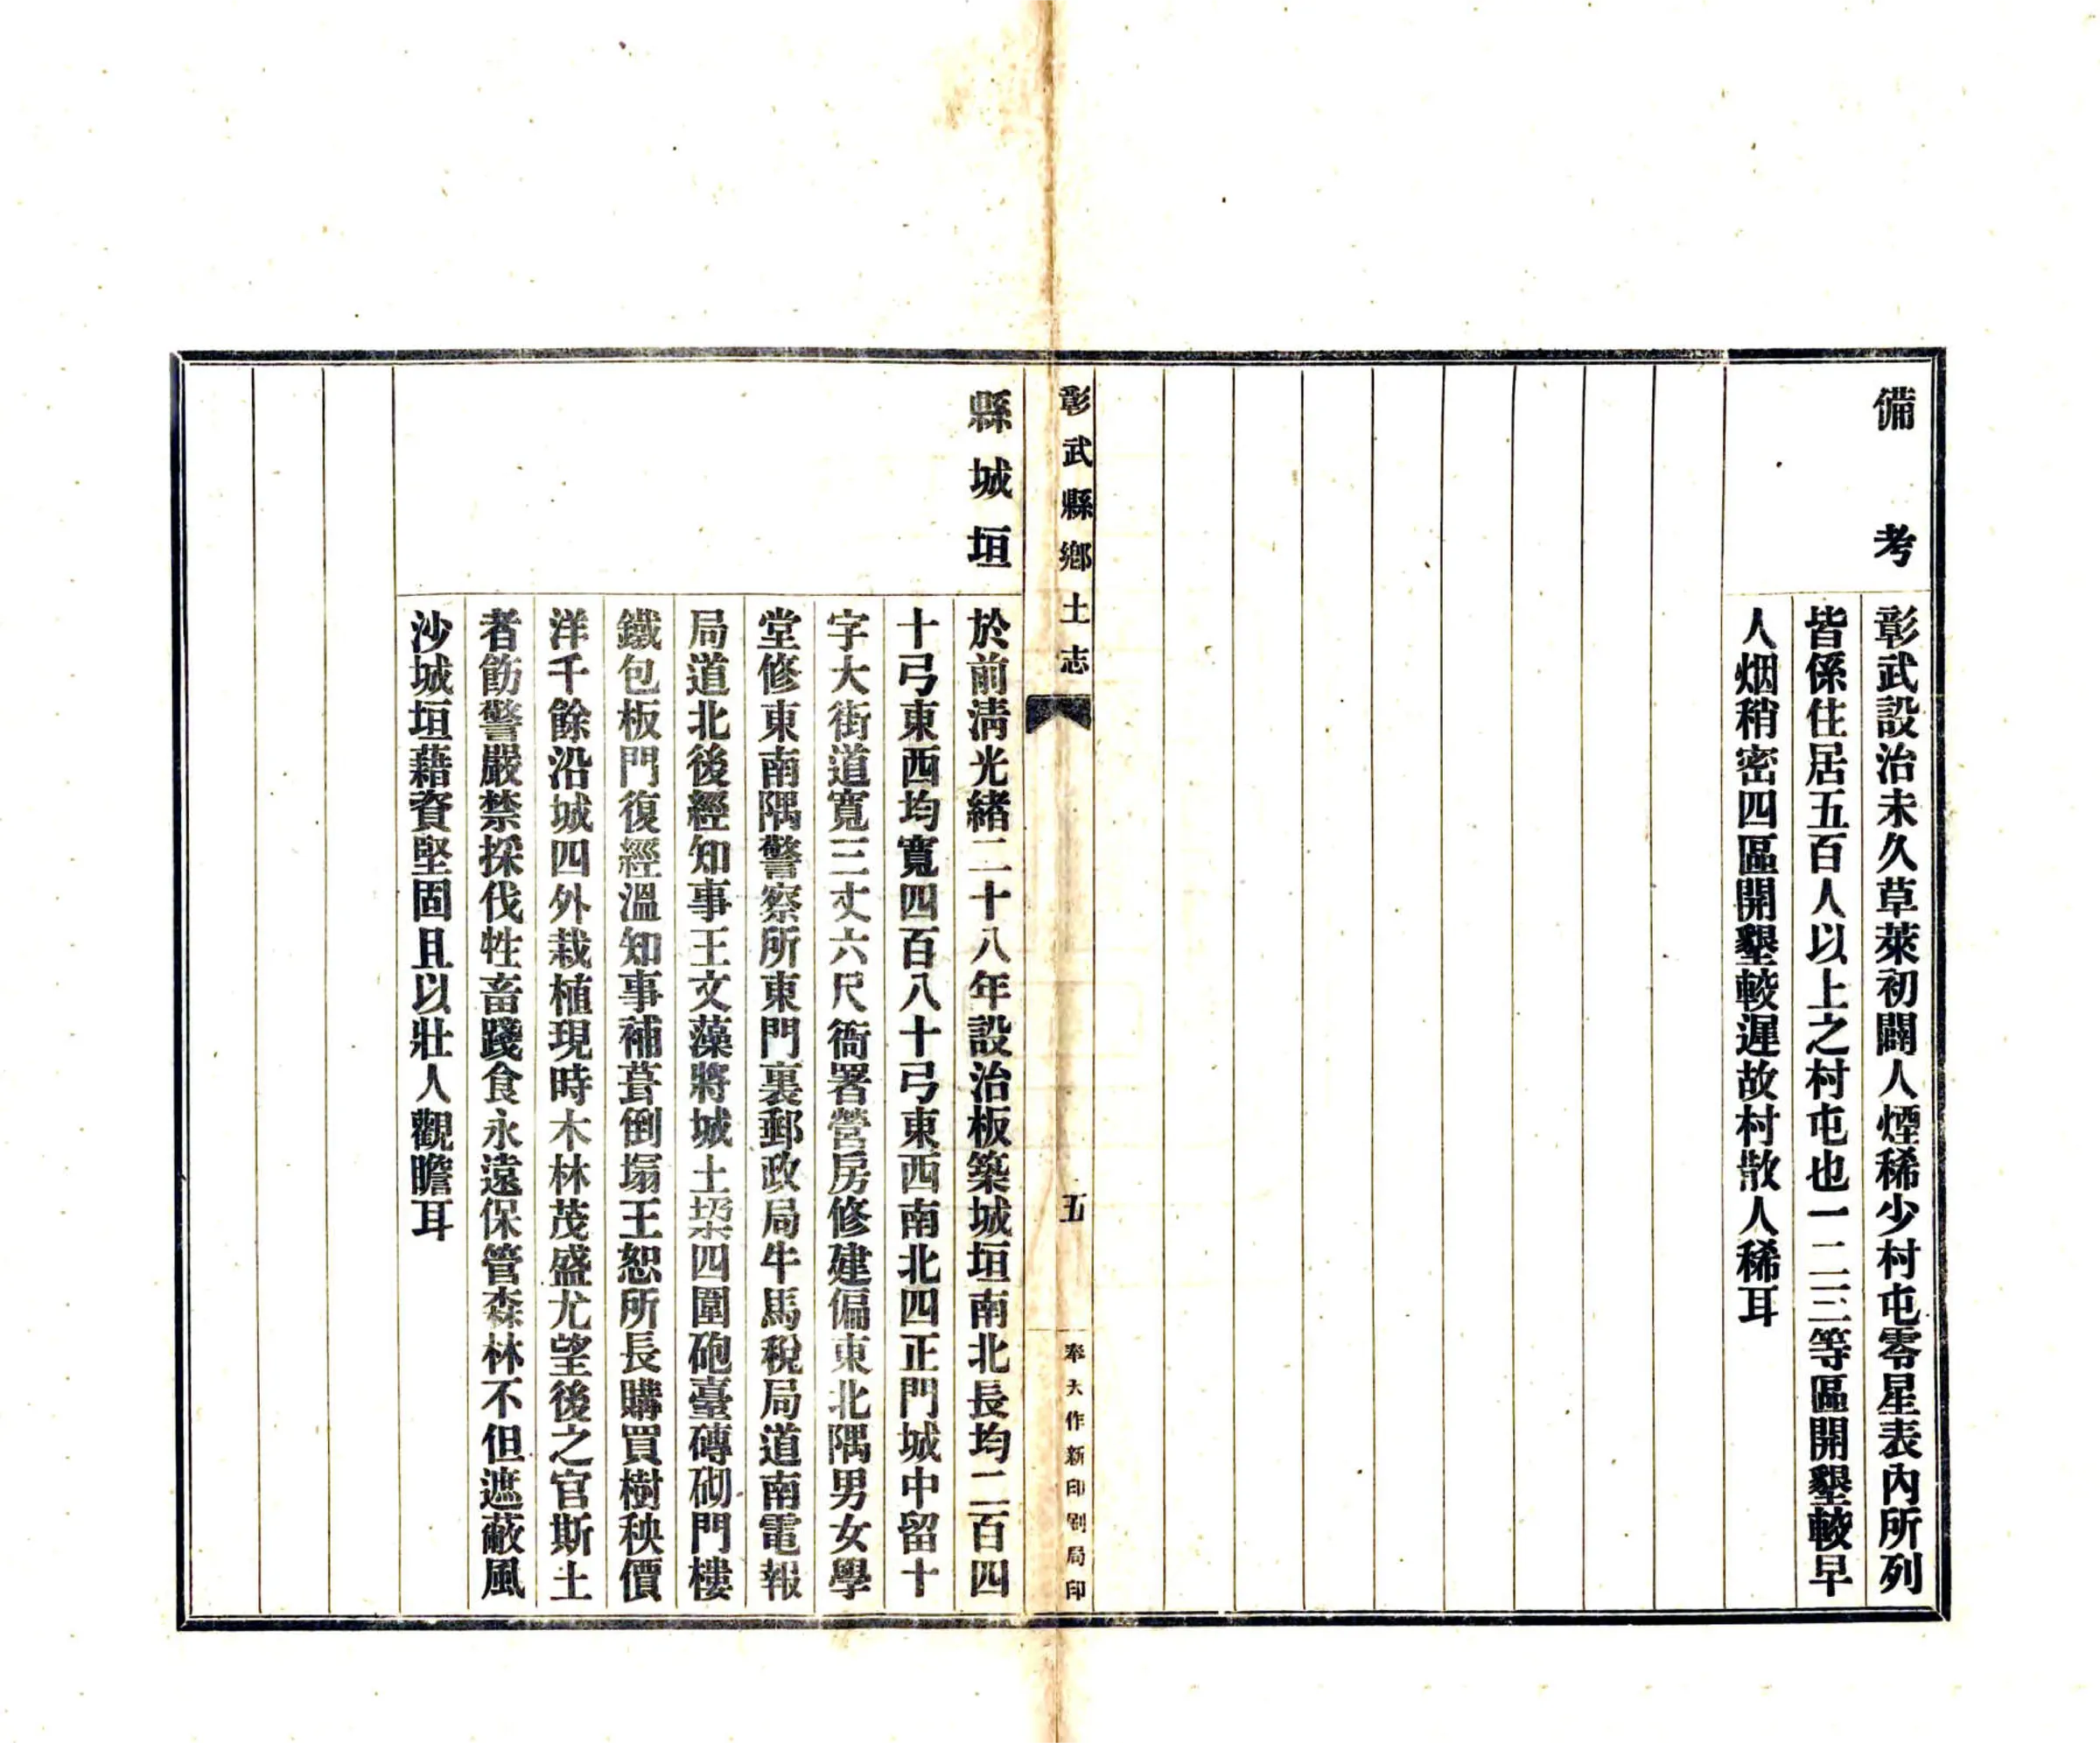 備考
彰武設治未久草萊初闢人煙稀少村屯零星表內所列
皆係住居五百人以上之村屯也一二三等區開墾較早
人烟稍密四區開墾較遲故村散人稀耳
彰武縣鄉土志
五
奉天作新印刷局印
縣城垣
於前清光緒二十八年設治板築城垣南北長均二百四
十弓東西均寬四百八十弓東西南北四正門城中留十
字大街道寬三丈六尺衙署營房修建偏東北隅男女學
堂修東南隅警察所東門裏郵政局牛馬稅局道南電報
局道北後經知事王文藻將城土四圍砲臺磚砌門樓
鐵包板門復經溫知事補葺倒塌王恕所長購買樹秧價
洋千餘沿城四外栽植現時木林茂盛尤望後之官斯土
者飭警嚴禁採伐牲畜踐食永遠保管森林不但遮蔽風
沙城垣藉資堅固且以壯人觀瞻耳